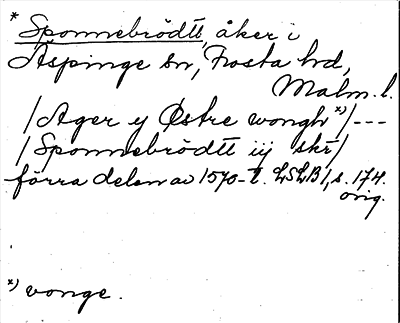 * Sponnebrödtt, åker i
Äspinge sn, Frosta hd,
Malm. l.
/Ager y Østre wongh *)/ ---
/Sponnebrödtt iij skr/
förra delen av 1570-t. LSLB 1, s. 174.
orig.
*) vonge.